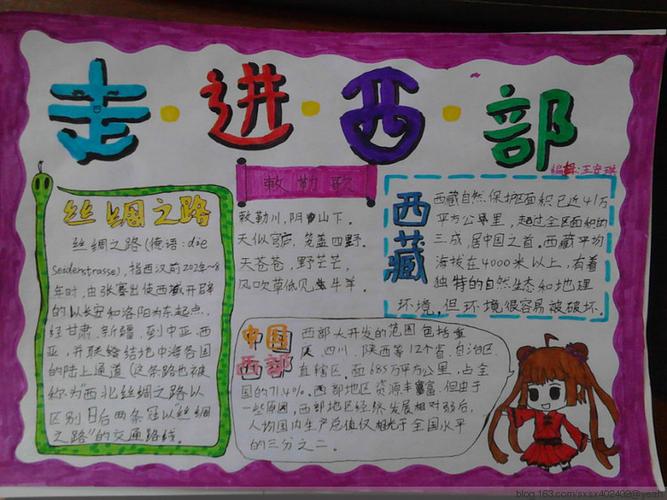 走·进·西·部
编辑:王安琪
丝绸之路
丝绸之路(德语:die
Seidenstrasse),指西汉前202年~8
年时,由张骞出使西域开辟
的以长安和洛阳为东起点,
经甘肃、新疆,到中亚、西
亚,并联络结地中海各国
的陆上通道(这条路也被
称为"西北丝绸之路以
区别日后两条冠以丝绸
之路"的交通路线。
敕勒歌
敕勒川,阴山下。
天似穹庐,笼盖四野。
天苍苍,野茫茫,
风吹草低见牛羊。
西藏
西藏自然保护区面积已近41万
平方公里,超过全区面积的
三成,居中国之首。西藏平均
海拔在4000米以上,有着
独特的自然生态和地理
环境,但环境很容易被破坏。
中国
西部
西部大开发的范围包括重
庆、四川、陕西等12个省、自治区、
直辖区。面685万平方公里,占全
国的71.4%。西部地区资源丰富,但由于
一些原因,西部地区经济发展相对弱后,
人均国内生产总值仅相当于全国水平
的三分之二。
blog.163.com/sxsx402402@yeah